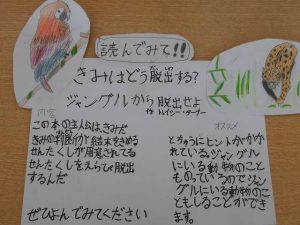 読んでみて!!
きみはどう脱出する?
ジャングルから脱出せよ
作 トレイシー・ターナー
内容
この本の主人公は、きみだ
きみの判断が結末をきめる
せんたくしが用意されてる
せんたくしをえらび脱出
するんだ
ぜひよんでみてください
オススメ
とちゅうにヒントがかか
れているジャングル
にいる動物のこと
ものっているのでジャン
グルにいる動物のこ
ともしることができ
ます。